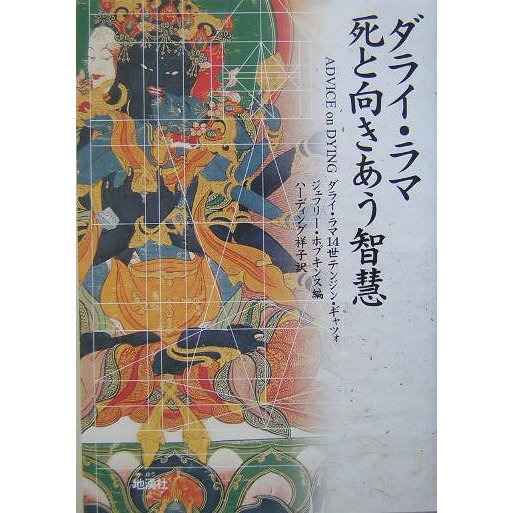 ダライ・ラマ
死と向きあう智慧
ADVICE on DYING
ダライ・ラマ14世テンジン・ギャツォ
ジェフリー・ホプキンス編
ハーディング祥子訳
地湧社